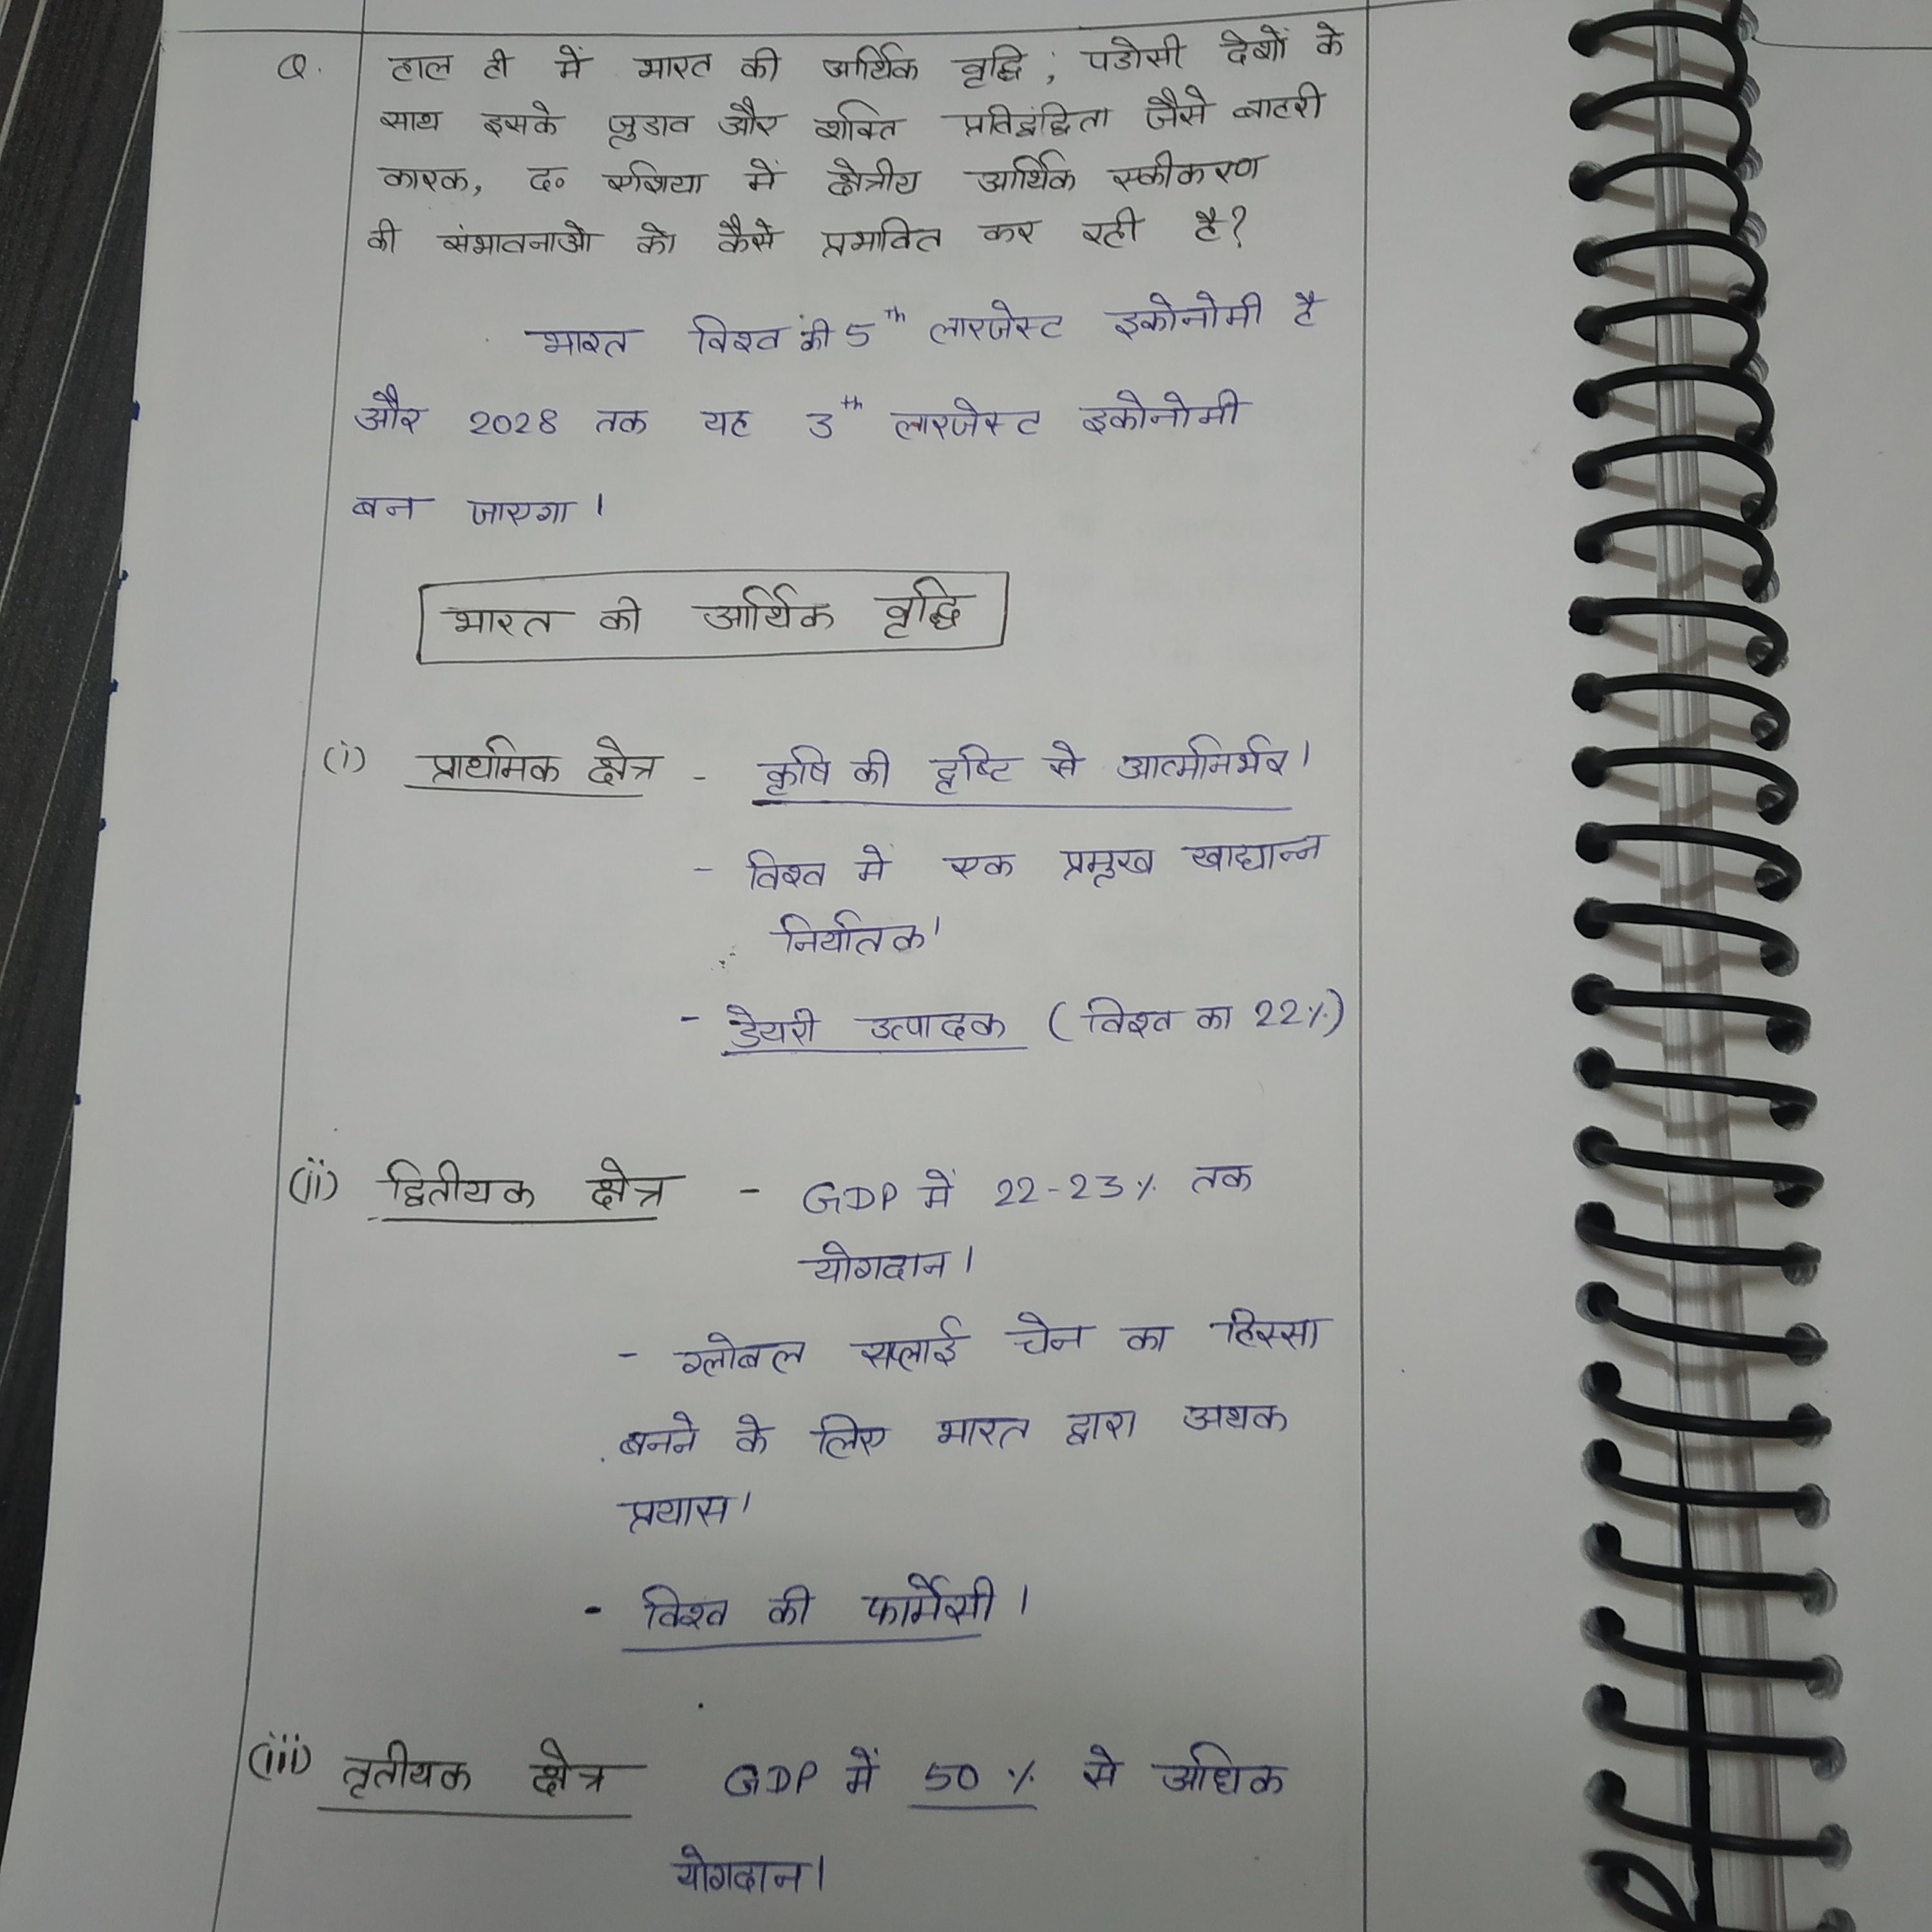 Q. हाल ही में भारत की आर्थिक वृद्धि, पडोसी देशों के
साथ इसके जुडाव और शक्ति प्रतिद्वंद्विता जैसे बाहरी
कारक, द० एशिया में क्षेत्रीय आर्थिक एकीकरण
की संभावनाओ को कैसे प्रभावित कर रही है?
भारत विश्व की 5th लारजेस्ट इकोनोमी है
और 2028 तक यह 3th लारजेस्ट इकोनोमी
बन जाएगा।
भारत की आर्थिक वृद्धि
(i) प्राथमिक क्षेत्र - कृषि की दृष्टि से आत्मनिर्भर।
- विश्व में एक प्रमुख खाद्यान्न
निर्यातक।
- डेयरी उत्पादक (विश्व का 22%)
(ii) द्वितीयक क्षेत्र - GDP में 22-23% तक
योगदान।
- ग्लोबल सप्लाई चेन का हिस्सा
बनने के लिए भारत द्वारा अथक
प्रयास।
- विश्व की फार्मेसी।
(iii) तृतीयक क्षेत्र GDP में 50% से अधिक
योगदान।